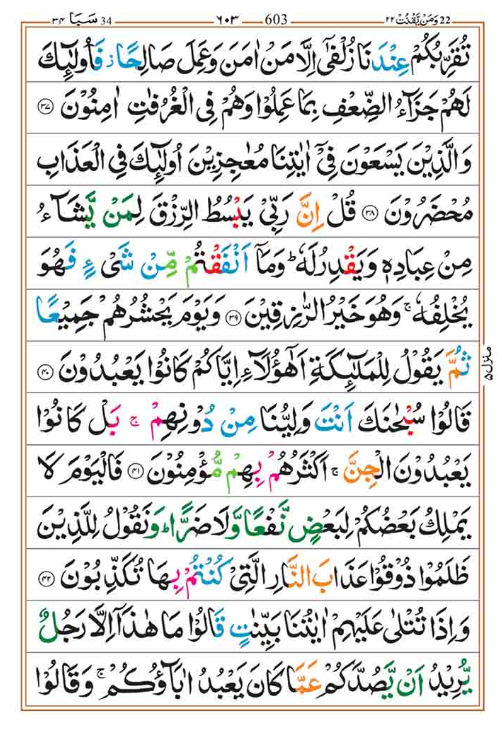 وَمَنْ يَّقْنُتْ ٢٢ 22 603 ٦٠٣ 34 سَبَا ٣٤
تُقَرِّبُكُمْ عِنْدَنَا زُلْفٰٓى اِلَّا مَنْ اٰمَنَ وَعَمِلَ صَالِحًا ۡ فَاُولٰٓئِكَ
لَهُمْ جَزَآءُ الضِّعْفِ بِمَا عَمِلُوْا وَهُمْ فِى الْغُرُفٰتِ اٰمِنُوْنَ ﴿۳۷﴾
وَالَّذِيْنَ يَسْعَوْنَ فِىْٓ اٰيٰتِنَا مُعٰجِزِيْنَ اُولٰٓئِكَ فِى الْعَذَابِ
مُحْضَرُوْنَ ﴿۳۸﴾ قُلْ اِنَّ رَبِّىْ يَبْسُطُ الرِّزْقَ لِمَنْ يَّشَآءُ
مِنْ عِبَادِهٖ وَيَقْدِرُ لَهٗ ؕ وَمَاۤ اَنْفَقْتُمْ مِّنْ شَىْءٍ فَهُوَ
يُخْلِفُهٗ ۚ وَهُوَ خَيْرُ الرّٰزِقِيْنَ ﴿۳۹﴾ وَيَوْمَ يَحْشُرُهُمْ جَمِيْعًا
ثُمَّ يَقُوْلُ لِلْمَلٰٓئِكَةِ اَهٰٓؤُلَآءِ اِيَّاكُمْ كَانُوْا يَعْبُدُوْنَ ﴿۴۰﴾
قَالُوْا سُبْحٰنَكَ اَنْتَ وَلِيُّنَا مِنْ دُوْنِهِمْ ۚ بَلْ كَانُوْا
يَعْبُدُوْنَ الْجِنَّ ۚ اَكْثَرُهُمْ بِهِمْ مُّؤْمِنُوْنَ ﴿۴۱﴾ فَالْيَوْمَ لَا
يَمْلِكُ بَعْضُكُمْ لِبَعْضٍ نَّفْعًا وَّلَا ضَرًّا ؕ وَنَقُوْلُ لِلَّذِيْنَ
ظَلَمُوْا ذُوْقُوْا عَذَابَ النَّارِ الَّتِىْ كُنْتُمْ بِهَا تُكَذِّبُوْنَ ﴿۴۲﴾
وَاِذَا تُتْلٰى عَلَيْهِمْ اٰيٰتُنَا بَيِّنٰتٍ قَالُوْا مَا هٰذَاۤ اِلَّا رَجُلٌ
يُّرِيْدُ اَنْ يَّصُدَّكُمْ عَمَّا كَانَ يَعْبُدُ اٰبَآؤُكُمْ ۚ وَقَالُوْا
منزل ۵